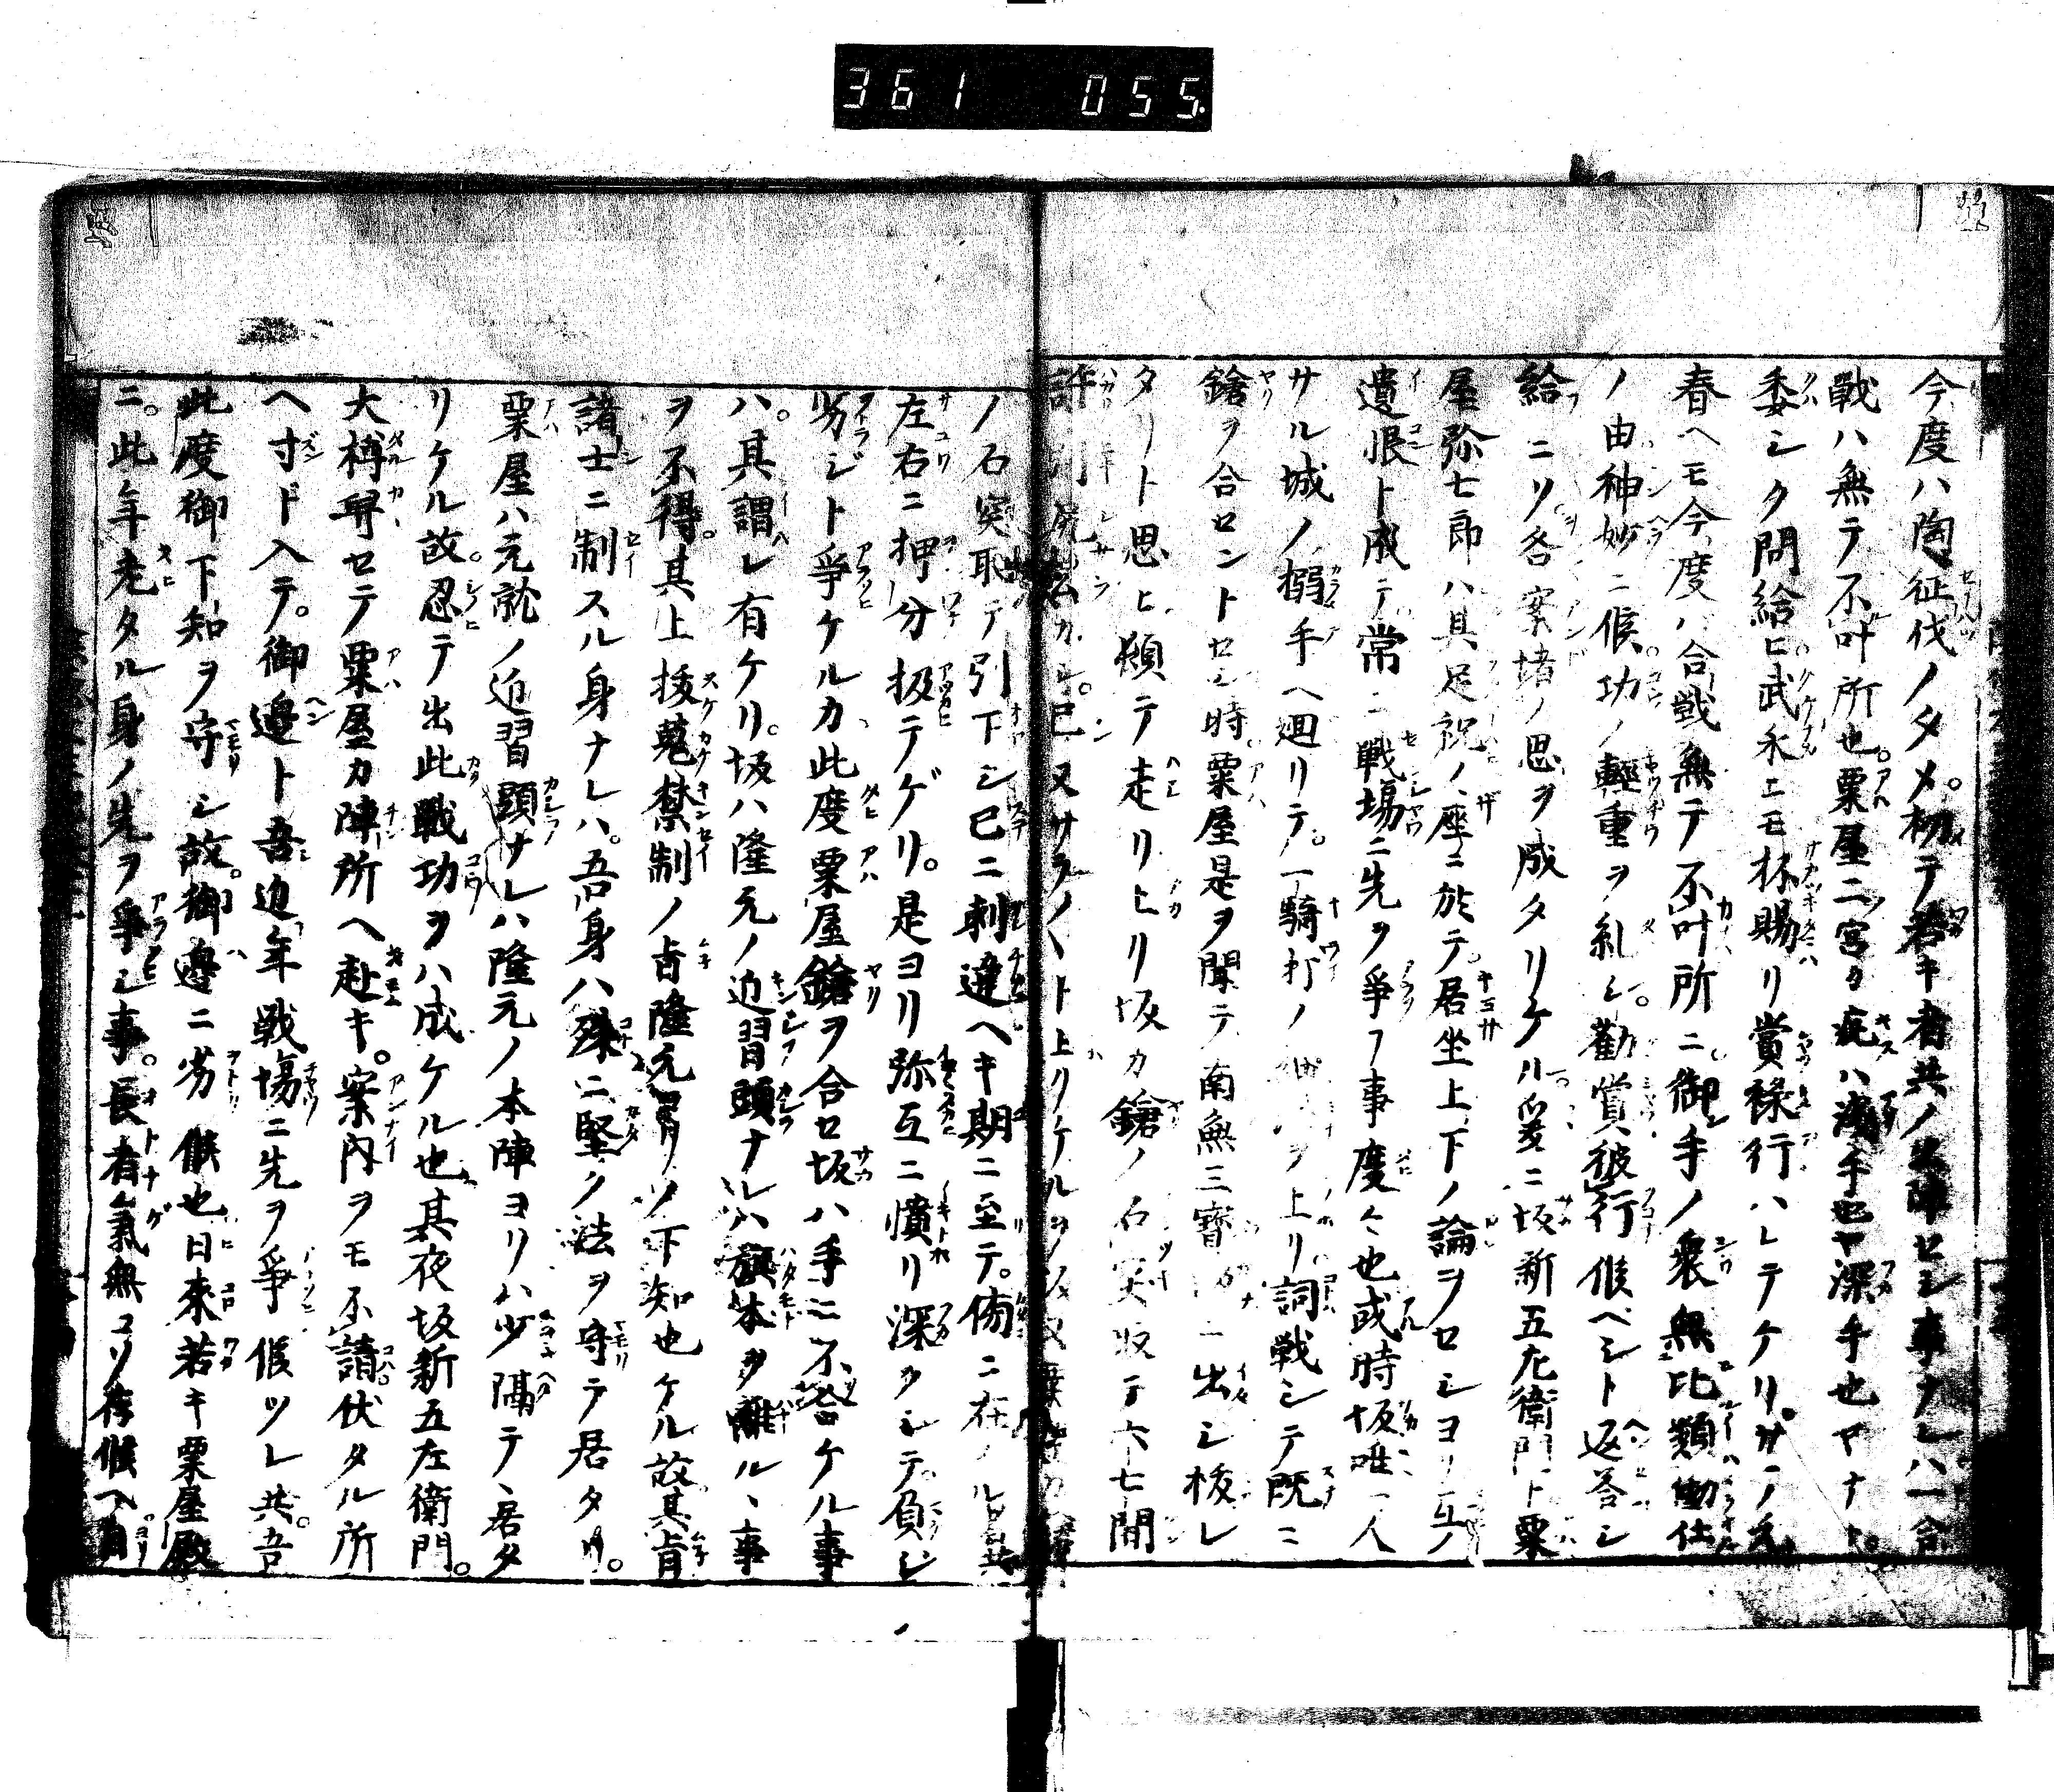 361 055
今度ハ陶征伐ノタメ。初テ若キ者共ノ出陣セシ事ナレハ一合
戰ハ無テ不叶所也。粟屋二宮カ疵ハ淺手也ヤ深手也ヤナト。
委シク問給ヒ武永エモ杯賜リ賞禄行ハレテケリ。サテノ元
春ヘモ今度ハ合戦無テ不叶所ニ。御手ノ衆無比類働仕
ノ由神妙ニ候功ノ輕重ヲ糺シ。勸賞彼行候ベシト返答シ
給ニリ。各案堵ノ思ヲ成タリケル爰ニ坂新五左衛門ト粟
屋弥七郎ハ具足祝ノ座ニ於テ居坐上下ノ論ヲセシヨリ互ノ
遺恨ト成テ常ニ戦場ニ先ヲ爭フ事度々也或時坂唯一人
サル城ノ搦手ヘ廻リテ。一騎打ノ細ヲ上リ。詞戦シテ既ニ
鎗ヲ合セントセシ時。粟屋是ヲ聞テ南無三寶ニ出シ棙レ
タリト思ヒ頻テ走リ上リ坂カ鎗ノ石突取テ六七間
許
ノ石突取テ引下シ已ニ刺違ヘキ期ニ至テ。傍ニ在ノル共
左右ニ押分扱テゲリ。是ヨリ弥互ニ憤リ深クシテ。負レ
劣ジト爭ケルカ此度粟屋鎗ヲ合セ坂ハ手ニ不合ケル事
ハ。其謂レ有ケリ。坂ハ隆元ノ近習頭ナレハ旗本ヲ離ルヽ事
ヲ不得。其上拔蒐禁制ノ旨隆元ヨリノ下知也ケル故其旨
諸士ニ制スル身ナレハ。吾身ハ殊ニ堅ク法ヲ守テ居タリ。
粟屋ハ元就ノ近習頭ナレハ隆元ノ本陣ヨリハ少隔テヽ居タ
リケル故。忍テ出此戰功ヲハ成ケル也其夜坂新五左衛門。
大樽舁セテ粟屋カ陣所ヘ赴キ。案内ヲモ不請伏タル所
ヘ寸ド入テ。御邉ト吾近年戦場ニ先ヲ爭候ツレ共。吾
此度御下知ヲ守シ故。御邉ニ劣候也日来若キ粟屋殿
ニ。此年老タル身ノ先ヲ爭シ事。長者氣無コソ存候ヘ。自